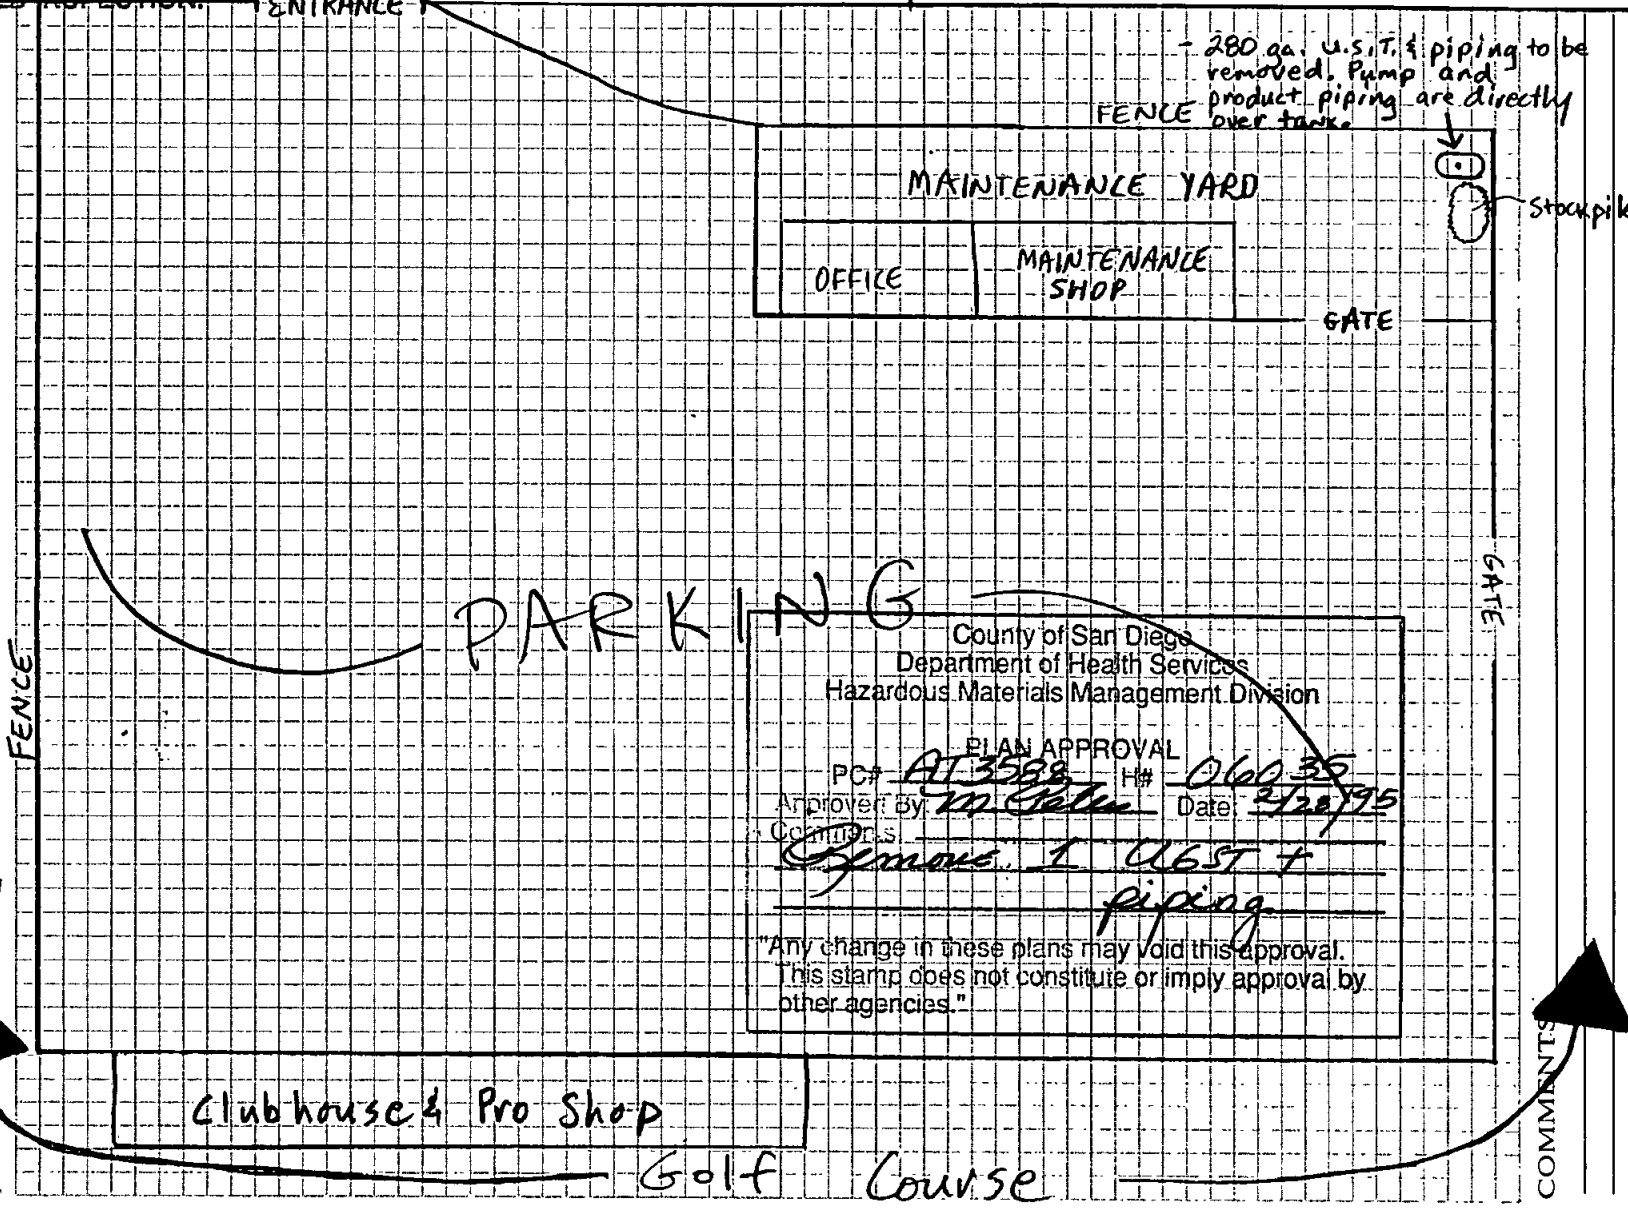 INSPECTION.
ENTRANCE
- 280 ga. U.S.T. & piping to be
removed. Pump and
product piping are directly
over tank.
FENCE
MAINTENANCE YARD
Stockpile
OFFICE
MAINTENANCE
SHOP
GATE
GATE
PARKING
FENCE
County of San Diego
Department of Health Services
Hazardous Materials Management Division
PLAN APPROVAL
PC# AT3588 H# 06035
Approved By: M Date: 2/28/95
Comments:
Remove 1 UGST +
piping
"Any change in these plans may void this approval.
This stamp does not constitute or imply approval by
other agencies."
COMMENTS
Clubhouse & Pro Shop
Golf Course